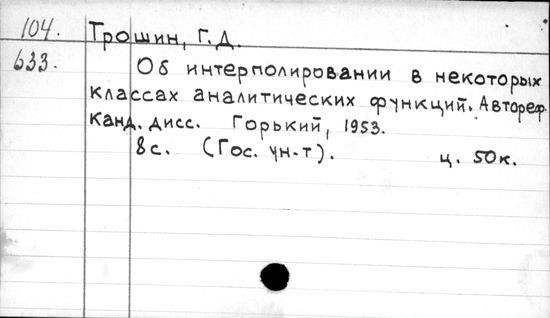 104. Трошин, Г.Д.
633. Об интерполировании в некоторых
классах аналитических функций. Автореф.
канд. дисс. Горький, 1953.
8с. (Гос. ун-т). ц. 50к.